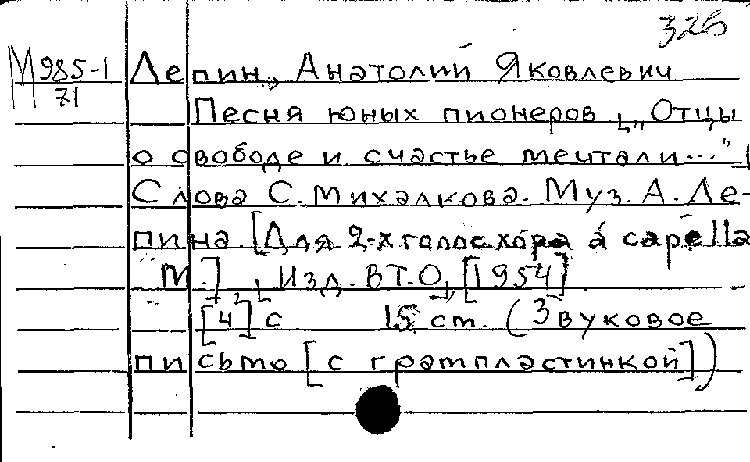 326
М 985-1 Лепин, Анатолий Яковлевич
71
Песня юных пионеров [„Отцы
о свободе и счастье мечтали..."]
Слова С. Михалкова. Муз. А. Ле-
пина. [Для 2-х голос. хора a capella
М.], [Изд. ВТО], [1954]
[4] с 15 см. (Звуковое
письмо [с грампластинкой])